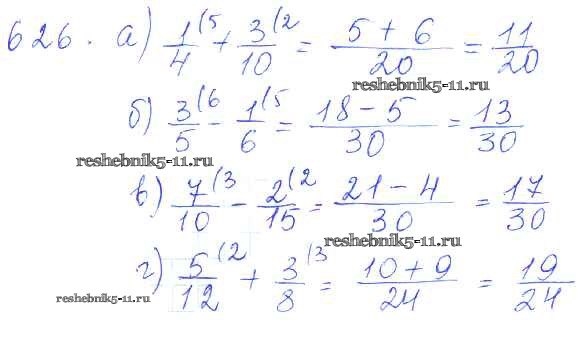 626. а) 1/4 (5 + 3/10 (2 = 5 + 6/20 = 11/20
reshebnik5-11.ru
б) 3/5 (6 - 1/6 (5 = 18 - 5/30 = 13/30
reshebnik5-11.ru
в) 7/10 (3 - 2/15 (2 = 21 - 4/30 = 17/30
reshebnik5-11.ru
г) 5/12 (2 + 3/8 (3 = 10 + 9/24 = 19/24
reshebnik5-11.ru